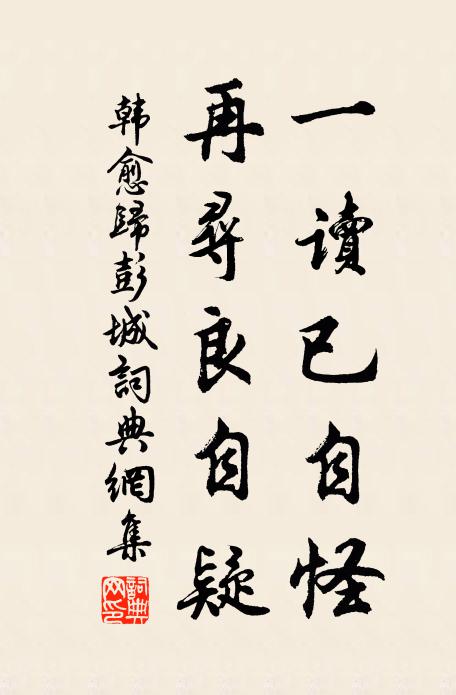 一讀已自怪
再尋良自疑
韩愈歸彭城詞典網集
詞典网印